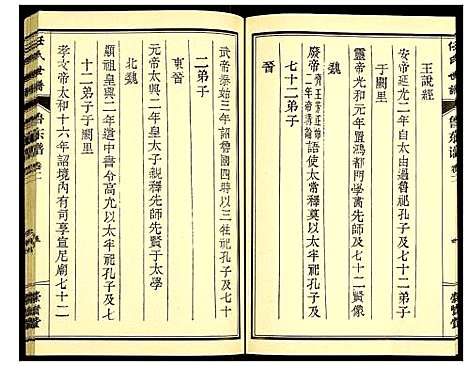 王說經
安帝延光二年自太山過魯祀七十二弟子
于闕里
靈帝光和元年置鴻都門學畫先師及七十二賢像
魏
廢帝齊王芳正始二年帝講論語使太常釋奠以太牢祀孔子及
七十二弟子
晉
武帝泰始三年詔魯國四時以三牲祀孔子及七十
二弟子
東晉
元帝太興二年皇太子親釋先師先賢于太學
北魏
顯祖皇興二年遣中書分高允以太牢祀孔子及七
十二弟子于闕里
孝文帝太和十六年詔境內有司享宣尼廟七十二
任氏世譜
魯东谱
卷二